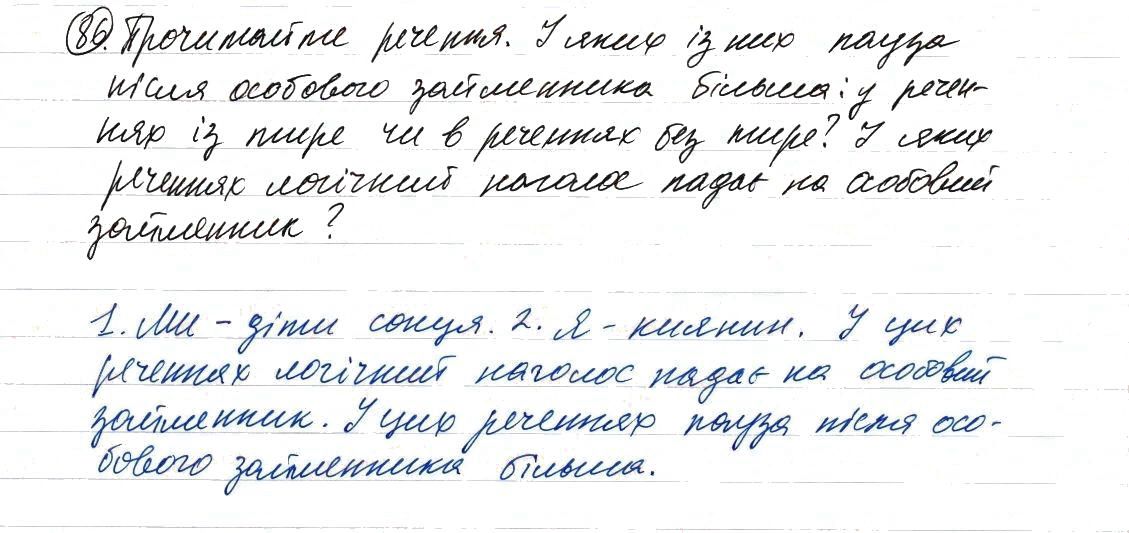 86. Прочитайте речення. У яких із них пауза
після особового займенника більша: у речен-
нях із тире чи в реченнях без тире? У яких
реченнях логічний наголос падає на особовий
займенник?
1. Ми – діти сонця. 2. Я – киянин. У цих
реченнях логічний наголос падає на особовий
займенник. У цих реченнях пауза після осо-
бового займенника більша.